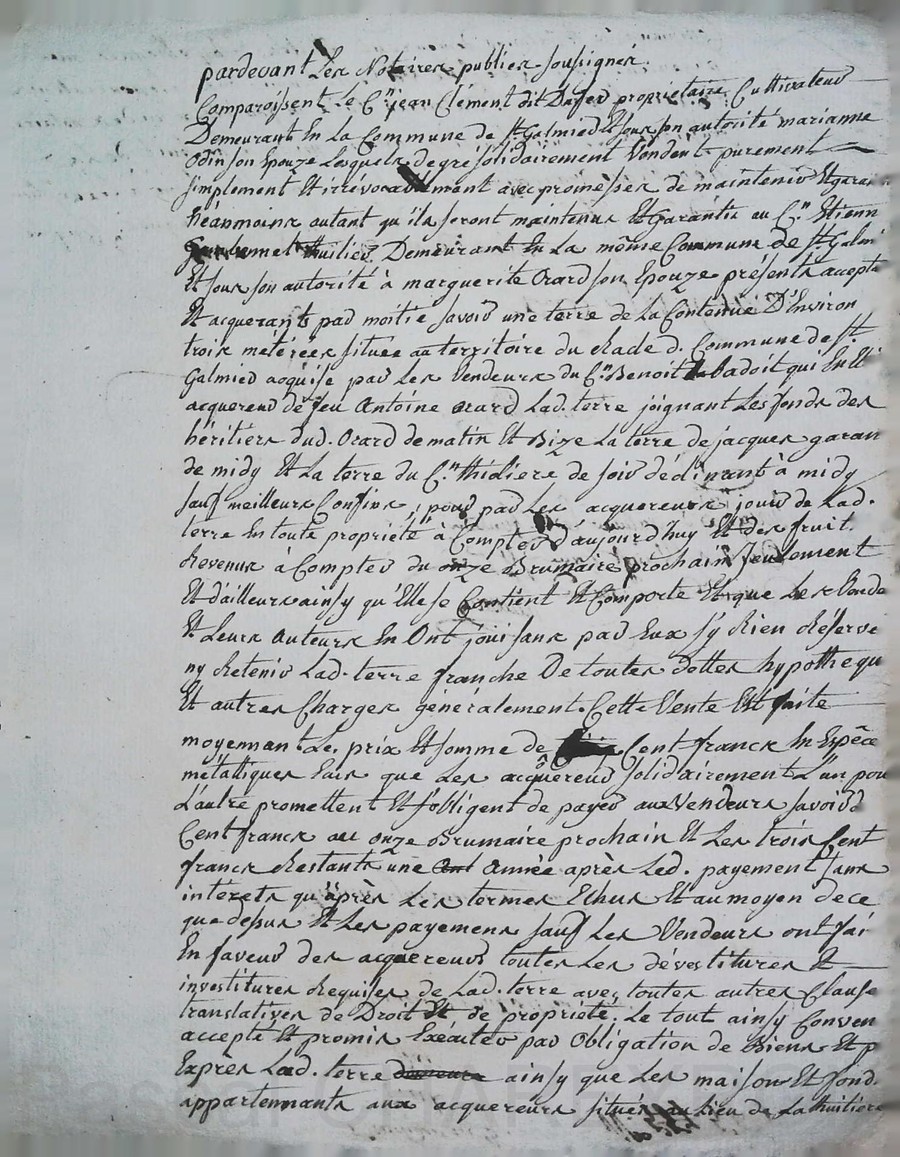 pardevant Les Notaires publics soussignés
Comparoissent Le C.en jean Clément dit Dafer proprietaire Cultivateur
Demeurant En La Commune de St Galmier Et sous son autorité marianne
Odin son Epouze Lesquels de gré solidairement Vendent purement
simplement Et irrévocablement avec promesses de maintenir Et garan
néanmoins autant qu'ils seront maintenus Et Garantis au C.en Etienn
huilier Demeurant En La même Commune de St Galmi
Et sous son autorité à marguerite Orard son Epouze présents accepta
Et acquerants par moitié savoir une terre de La Contenue D'Environ
trois métérées située au territoire du Commune de St
Galmier acquise par Les Vendeurs du C.en Benoit Badoit qui En Et
acquereur de feu Antoine Orard Lad. terre joignant Les fonds des
héritiers dud. Orard de matin Et Bize La terre de jacques garan
de midy Et La terre du C.en thiolière de soir déclinant à midy
sauf meilleurs Confins, pour par Les acquereurs jouir de Lad.
terre En toute propriété à Compter d'aujourd'huy Et des fruit.
Revenus à Compter du onze Brumaire prochain seulement
Et d'ailleurs ainsy qu'Elle se Contient Et Comporte Et que Les Vende
Et Leurs Auteurs En Ont joui sans par Eux s'y Rien Réserve
ny Retenir Lad. terre franche De toutes dettes hypothequ
Et autres Charges généralement. Cette Vente Est faite
moyennant Le prix Et somme de Cent francs En Espèce
métalliques Eux que Les acquereurs solidairement L'un pou
L'autre promettent Et s'obligent de payer aux Vendeurs savoir
Cent francs au onze Brumaire prochain Et Les trois Cent
francs Restants une Année après Led. payement sans
intérets qu'après Les termes Echus Et au moyen de ce
que dessus Et Les payemens sauf Les Vendeurs ont fai
En faveur des acquereurs toutes Les dévestitures Et
investitures Requises de Lad. terre avec toutes autres Clause
translatives de Droit Et de propriété. Le tout ainsy Conven
accepté Et promis Exécuter par Obligation de Biens Et p
Exprès Lad. terre ainsy que Les maison Et fond.
appartennants aux acquereurs situés au Lieu de La thuilière